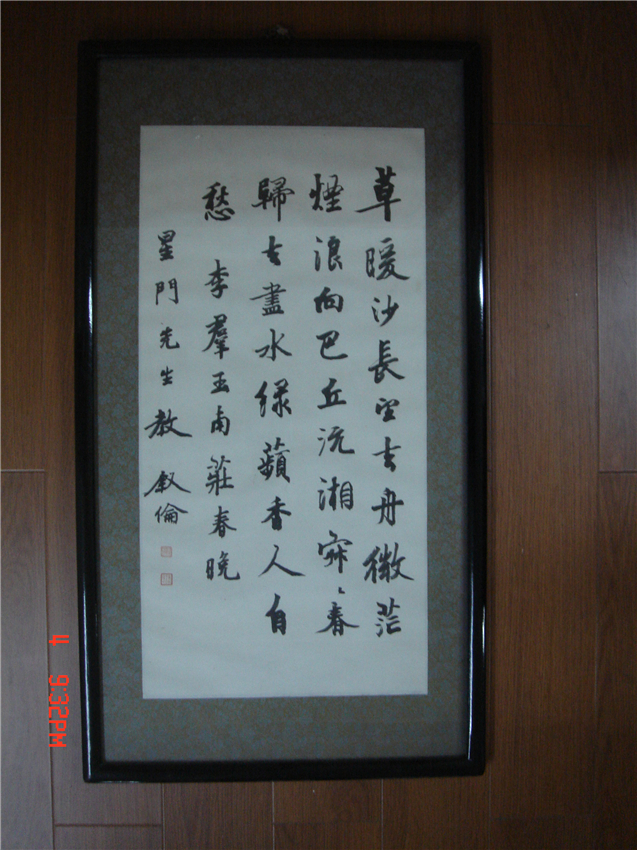 草暖沙長望去舟微茫
煙浪向巴丘沅湘寂〻春
歸去盡水緑蘋香人自
愁 李羣玉南莊春晚
星門先生教 叙倫
4 9:32PM